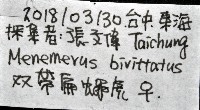 2018/03/30 台中東海
採集者:張文偉 Taichung
Menemerus bivittatus
双帶扁蠅虎 ♀.